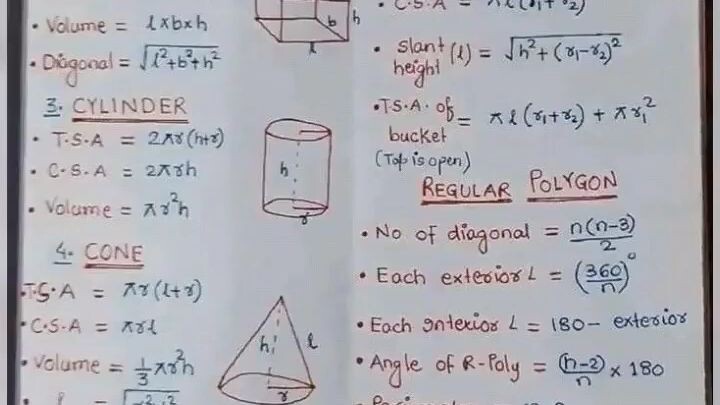 • Volume = l×b×h
• Diagonal = √l²+b²+h²
b
h
l
3. CYLINDER
• T.S.A = 2πr(h+r)
• C.S.A = 2πrh
• Volume = πr²h
h
r
4. CONE
• T.S.A = πr(l+r)
• C.S.A = πrl
• Volume = 1/3 πr²h
h
l
r
• C.S.A = πl(r₁+r₂)
• Slant height (l) = √h²+(r₁-r₂)²
• T.S.A. of bucket = πl(r₁+r₂) + πr₁²
(Top is open)
REGULAR POLYGON
• No of diagonal = n(n-3)/2
• Each exterior L = (360/n)°
• Each interior L = 180 - exterior
• Angle of R-Poly = (n-2)/n × 180